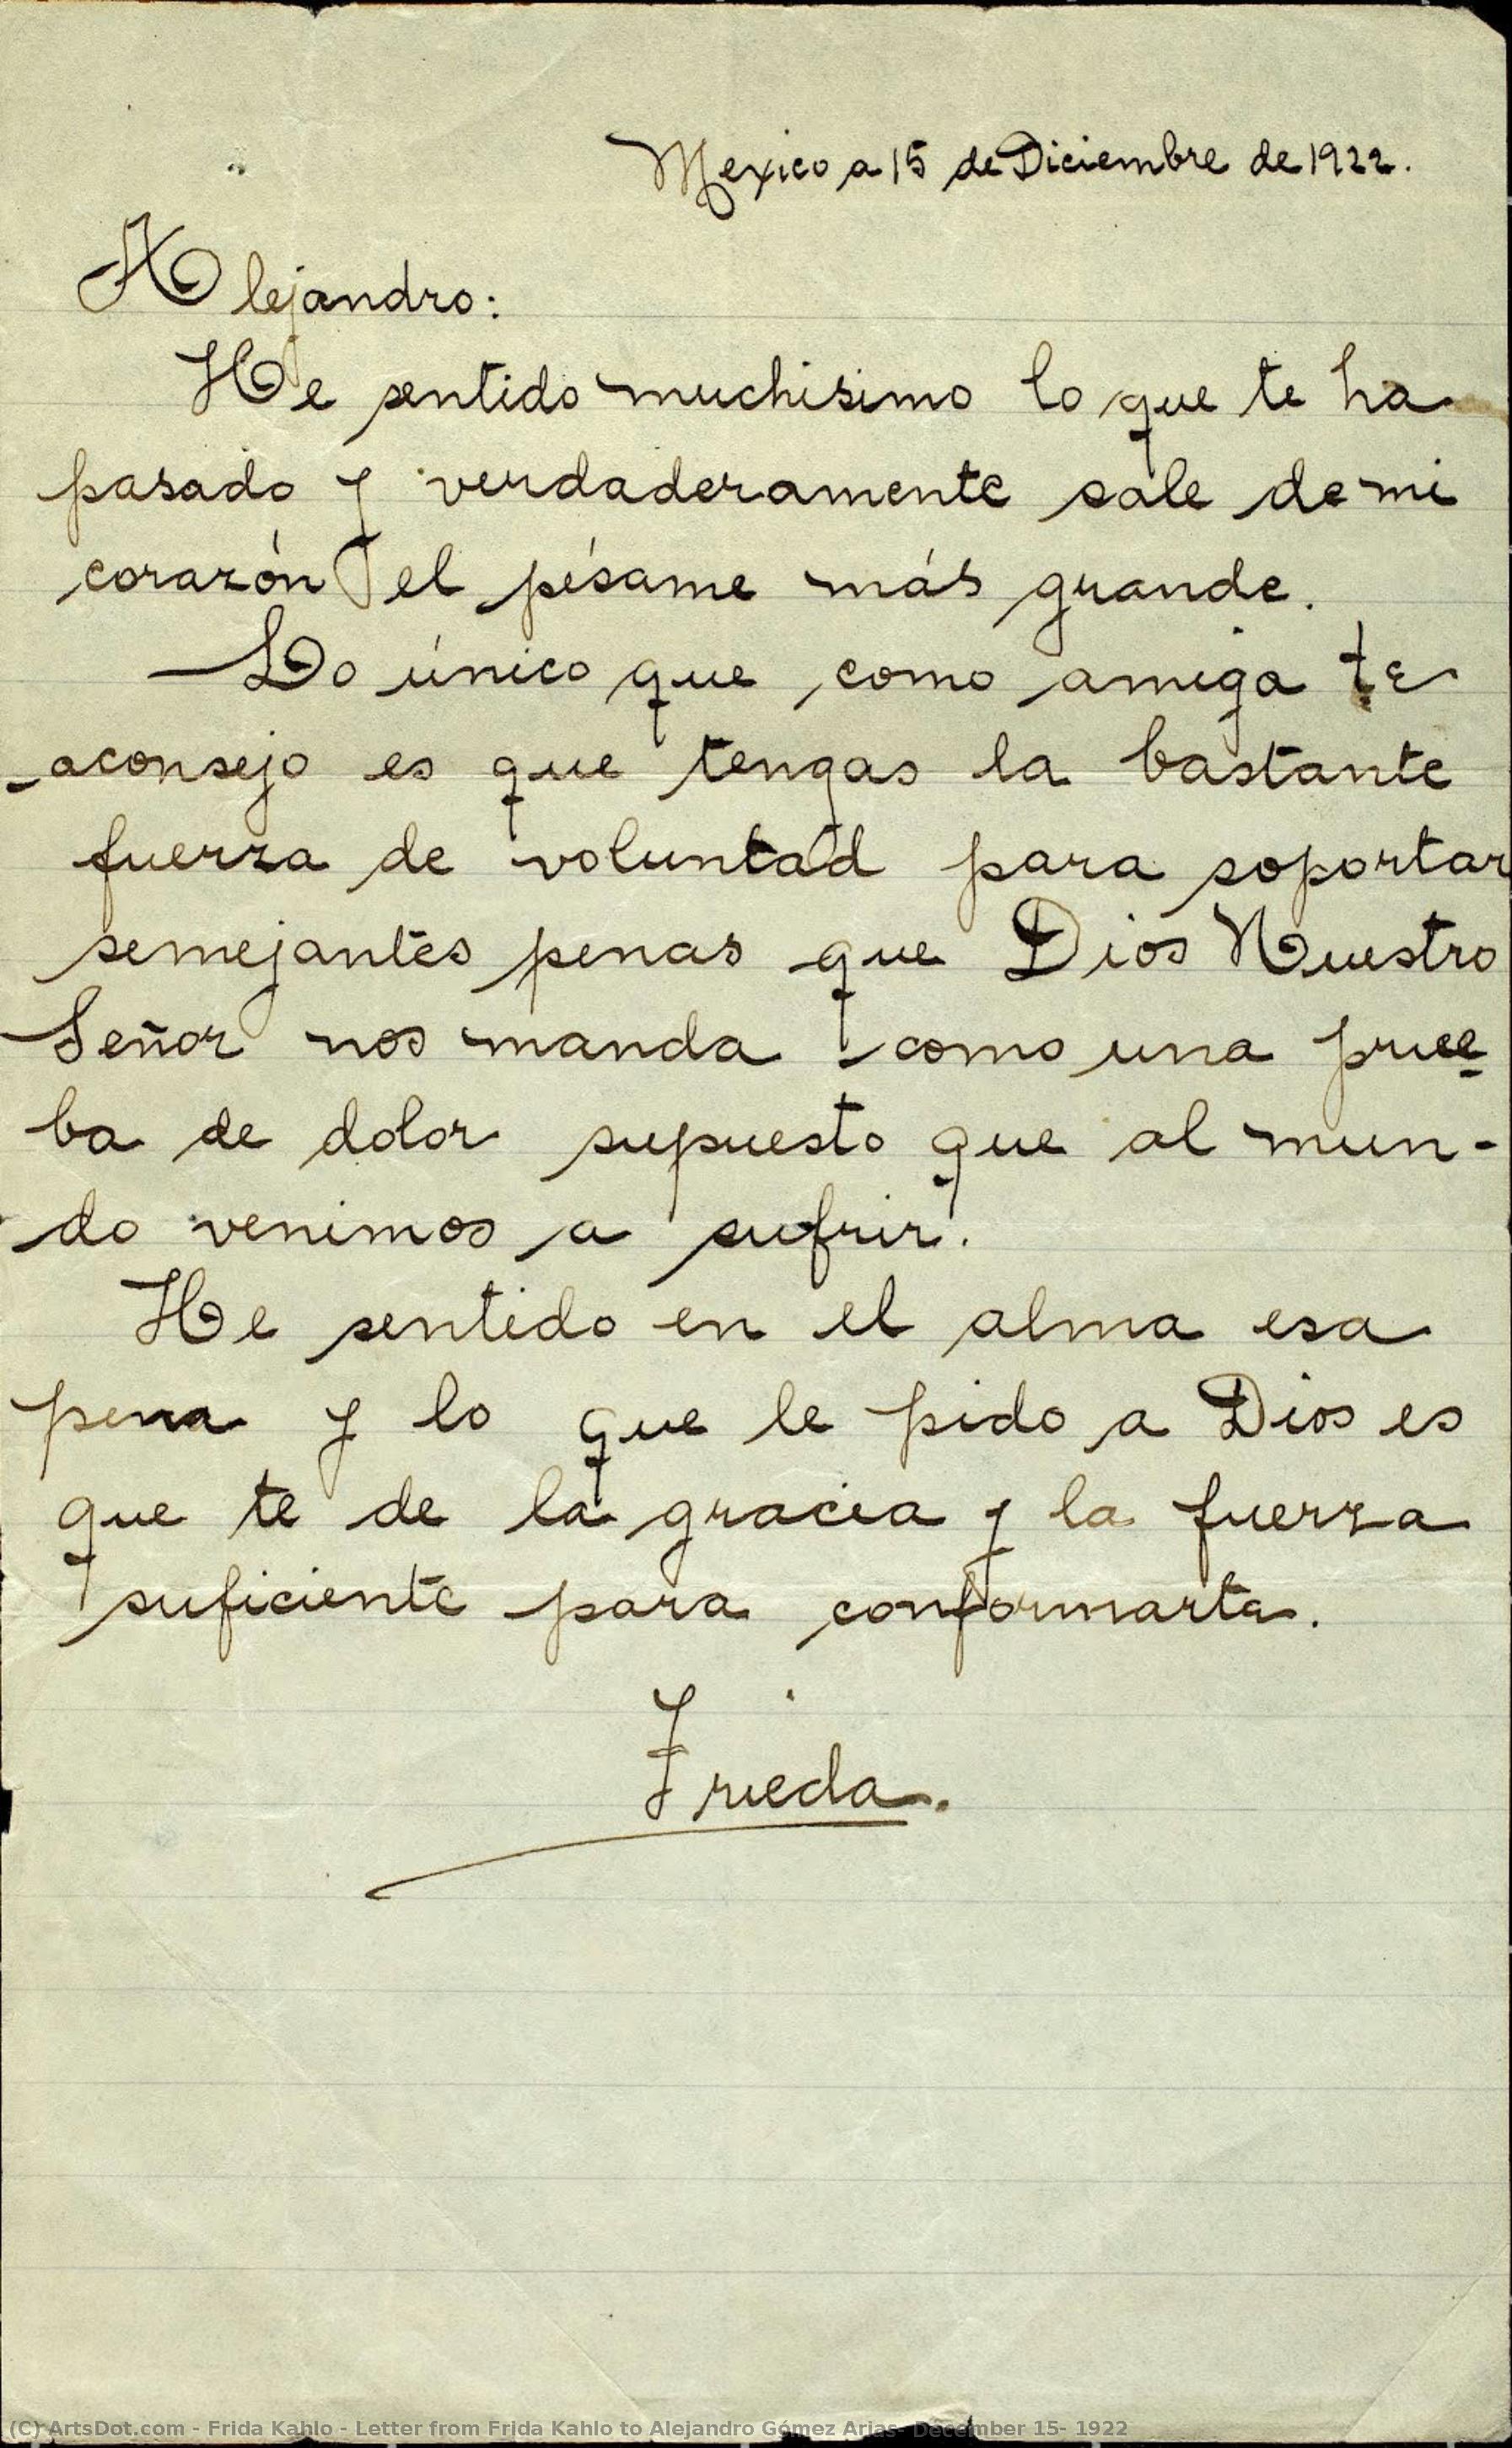 Mexico a 15 de Diciembre de 1922.
Alejandro:
He sentido muchisimo lo que te ha
pasado y verdaderamente sale de mi
corazón el pésame más grande.
Lo único que como amiga te
aconsejo es que tengas la bastante
fuerza de voluntad para soportar
semejantes penas que Dios Nuestro
Señor nos manda como una prue
ba de dolor supuesto que al mun-
do venimos a sufrir.
He sentido en el alma esa
pena y lo que le pido a Dios es
que te de la gracia y la fuerza
suficiente para conformarte.
Frieda.
(C) ArtsDot.com - Frida Kahlo - Letter from Frida Kahlo to Alejandro Gómez Arias- December 15- 1922